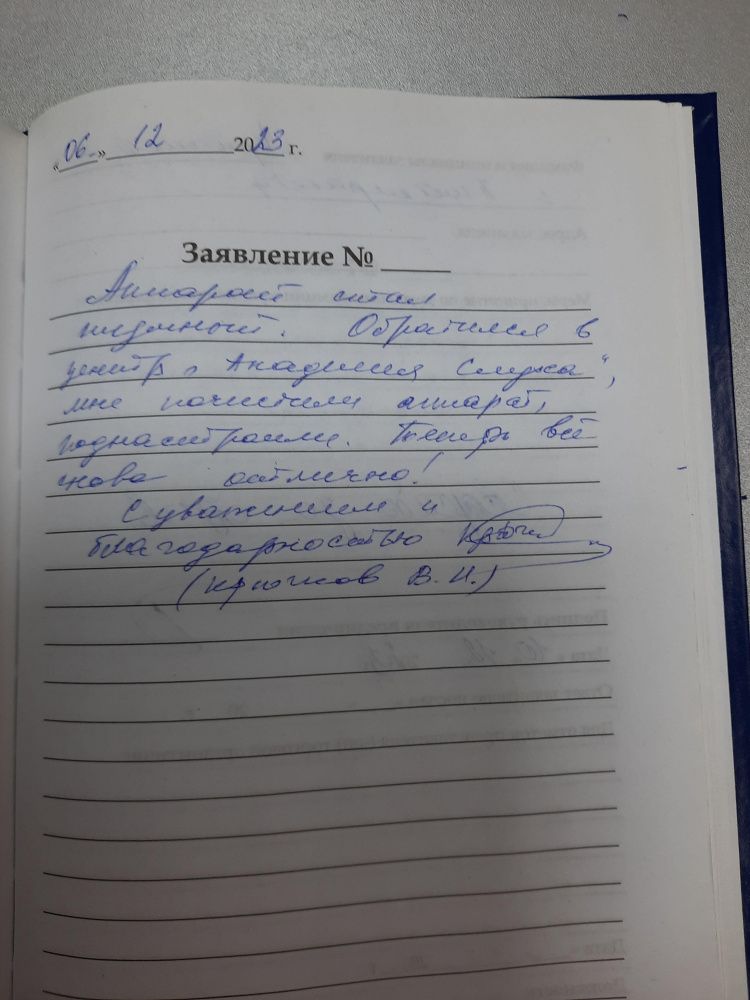 «06.» 12 2023 г.
Заявление №
Аппарат стал
Обратился в
центр „Академия Слуха“,
мне почистили аппарат,
поднастроили. Теперь всё
снова отлично!
С уважением и
благодарностью
(Крючков В.Н.)